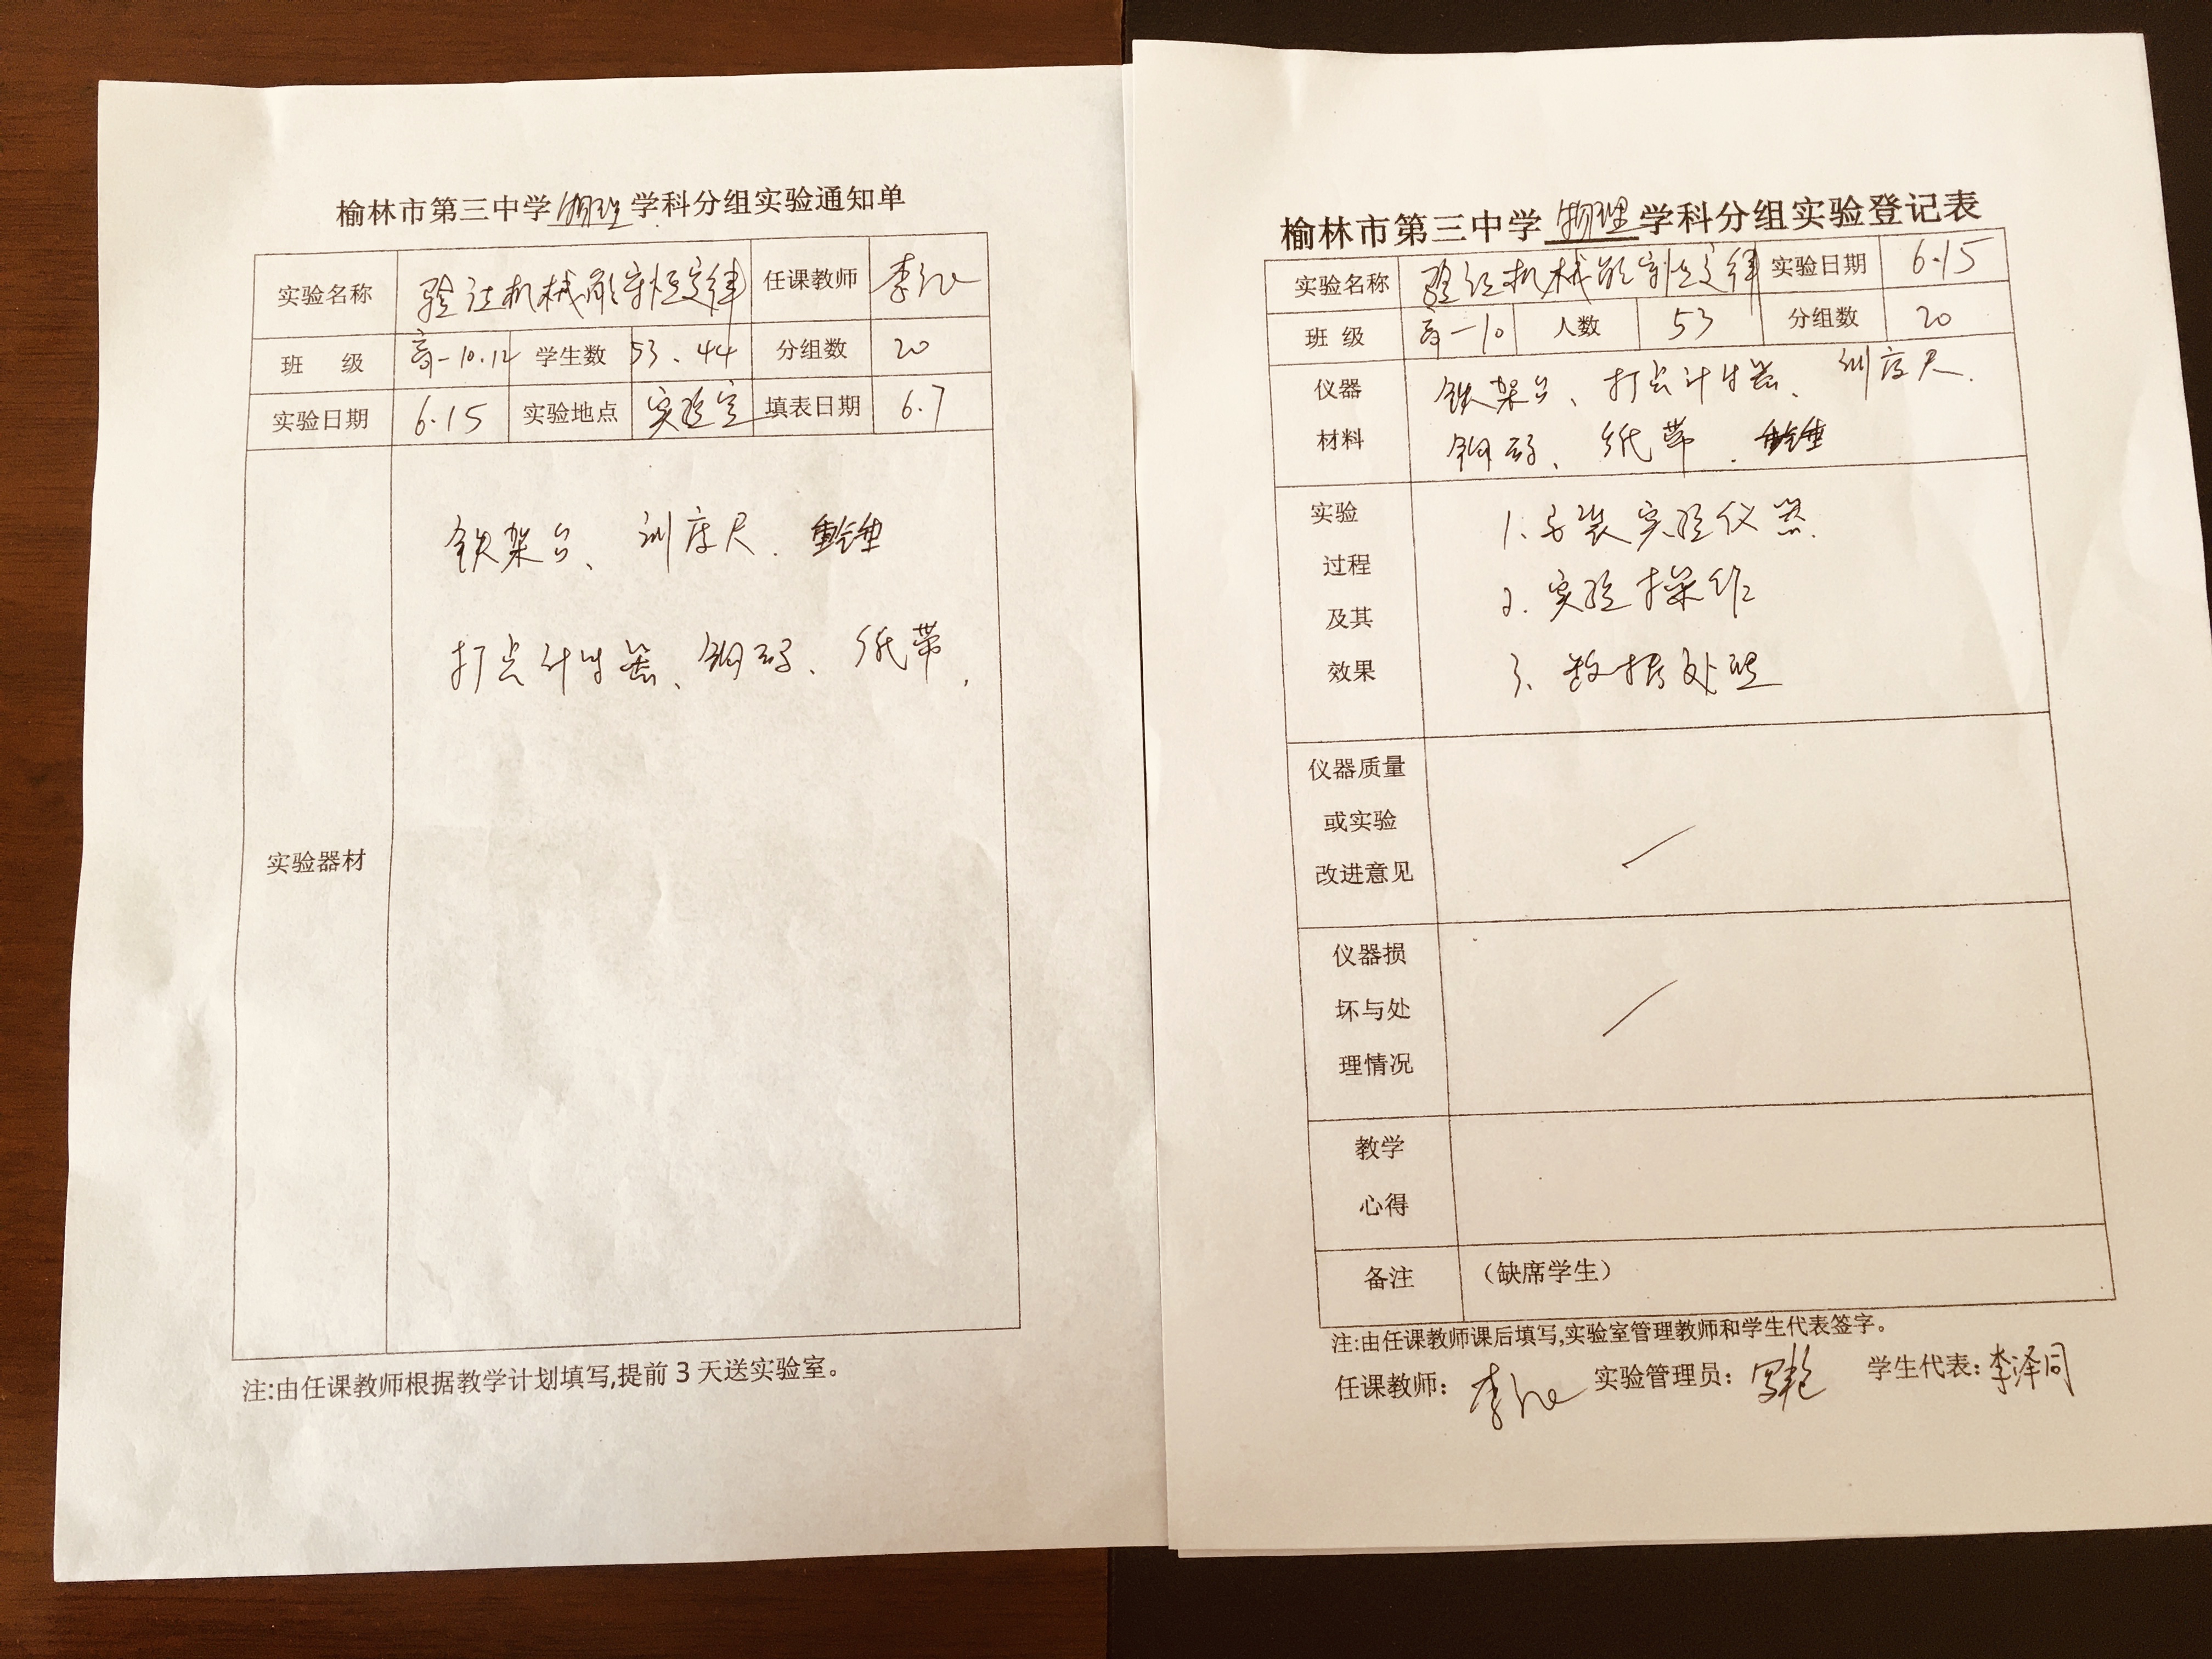 榆林市第三中学物理学科分组实验通知单
实验名称 验证机械能守恒定律 任课教师 李
班 级 高一10.12 学生数 53、44 分组数 20
实验日期 6.15 实验地点 实验室 填表日期 6.7
实验器材
铁架台、刻度尺、重锤
打点计时器、钩码、纸带、
注:由任课教师根据教学计划填写,提前3天送实验室。
榆林市第三中学物理学科分组实验登记表
实验名称 验证机械能守恒定律 实验日期 6.15
班 级 高一10 人数 53 分组数 20
仪器
材料
铁架台、打点计时器、刻度尺、
钩码、纸带、重锤
实验
过程
及其
效果
1.安装实验仪器.
2.实验操作
3、数据处理
仪器质量
或实验
改进意见
仪器损
坏与处
理情况
教学
心得
备注 (缺席学生)
注:由任课教师课后填写,实验室管理教师和学生代表签字。
任课教师: 李 实验管理员: 学生代表:李泽同